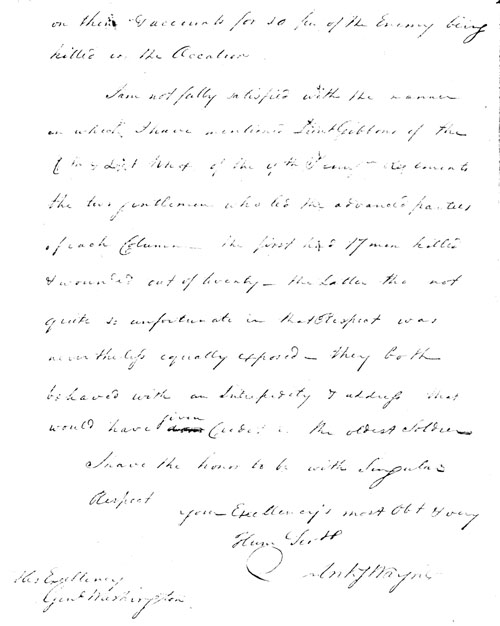 on their & accounts for so few of the Enemy being
killed on the Occation
I am not fully satisfied with the manner
in which I have mentioned Lieut Gibbons of the
6th & Lieut Knox of the 9th Penns. Regiments
the two gentlemen who led the advanced parties
of each Column — the first had 17 men killed
& wounded out of twenty — the Latter tho not
quite so unfortunate in that Respect was
nevertheless equally exposed — they both
behaved with an Intrepidity & address that
would have given Credit to the oldest Soldier
I have the honor to be with Singular
Respect
your Excellency's most Obt & very
Hum Sert
Anty Wayne
His Excellency
Genl Washington